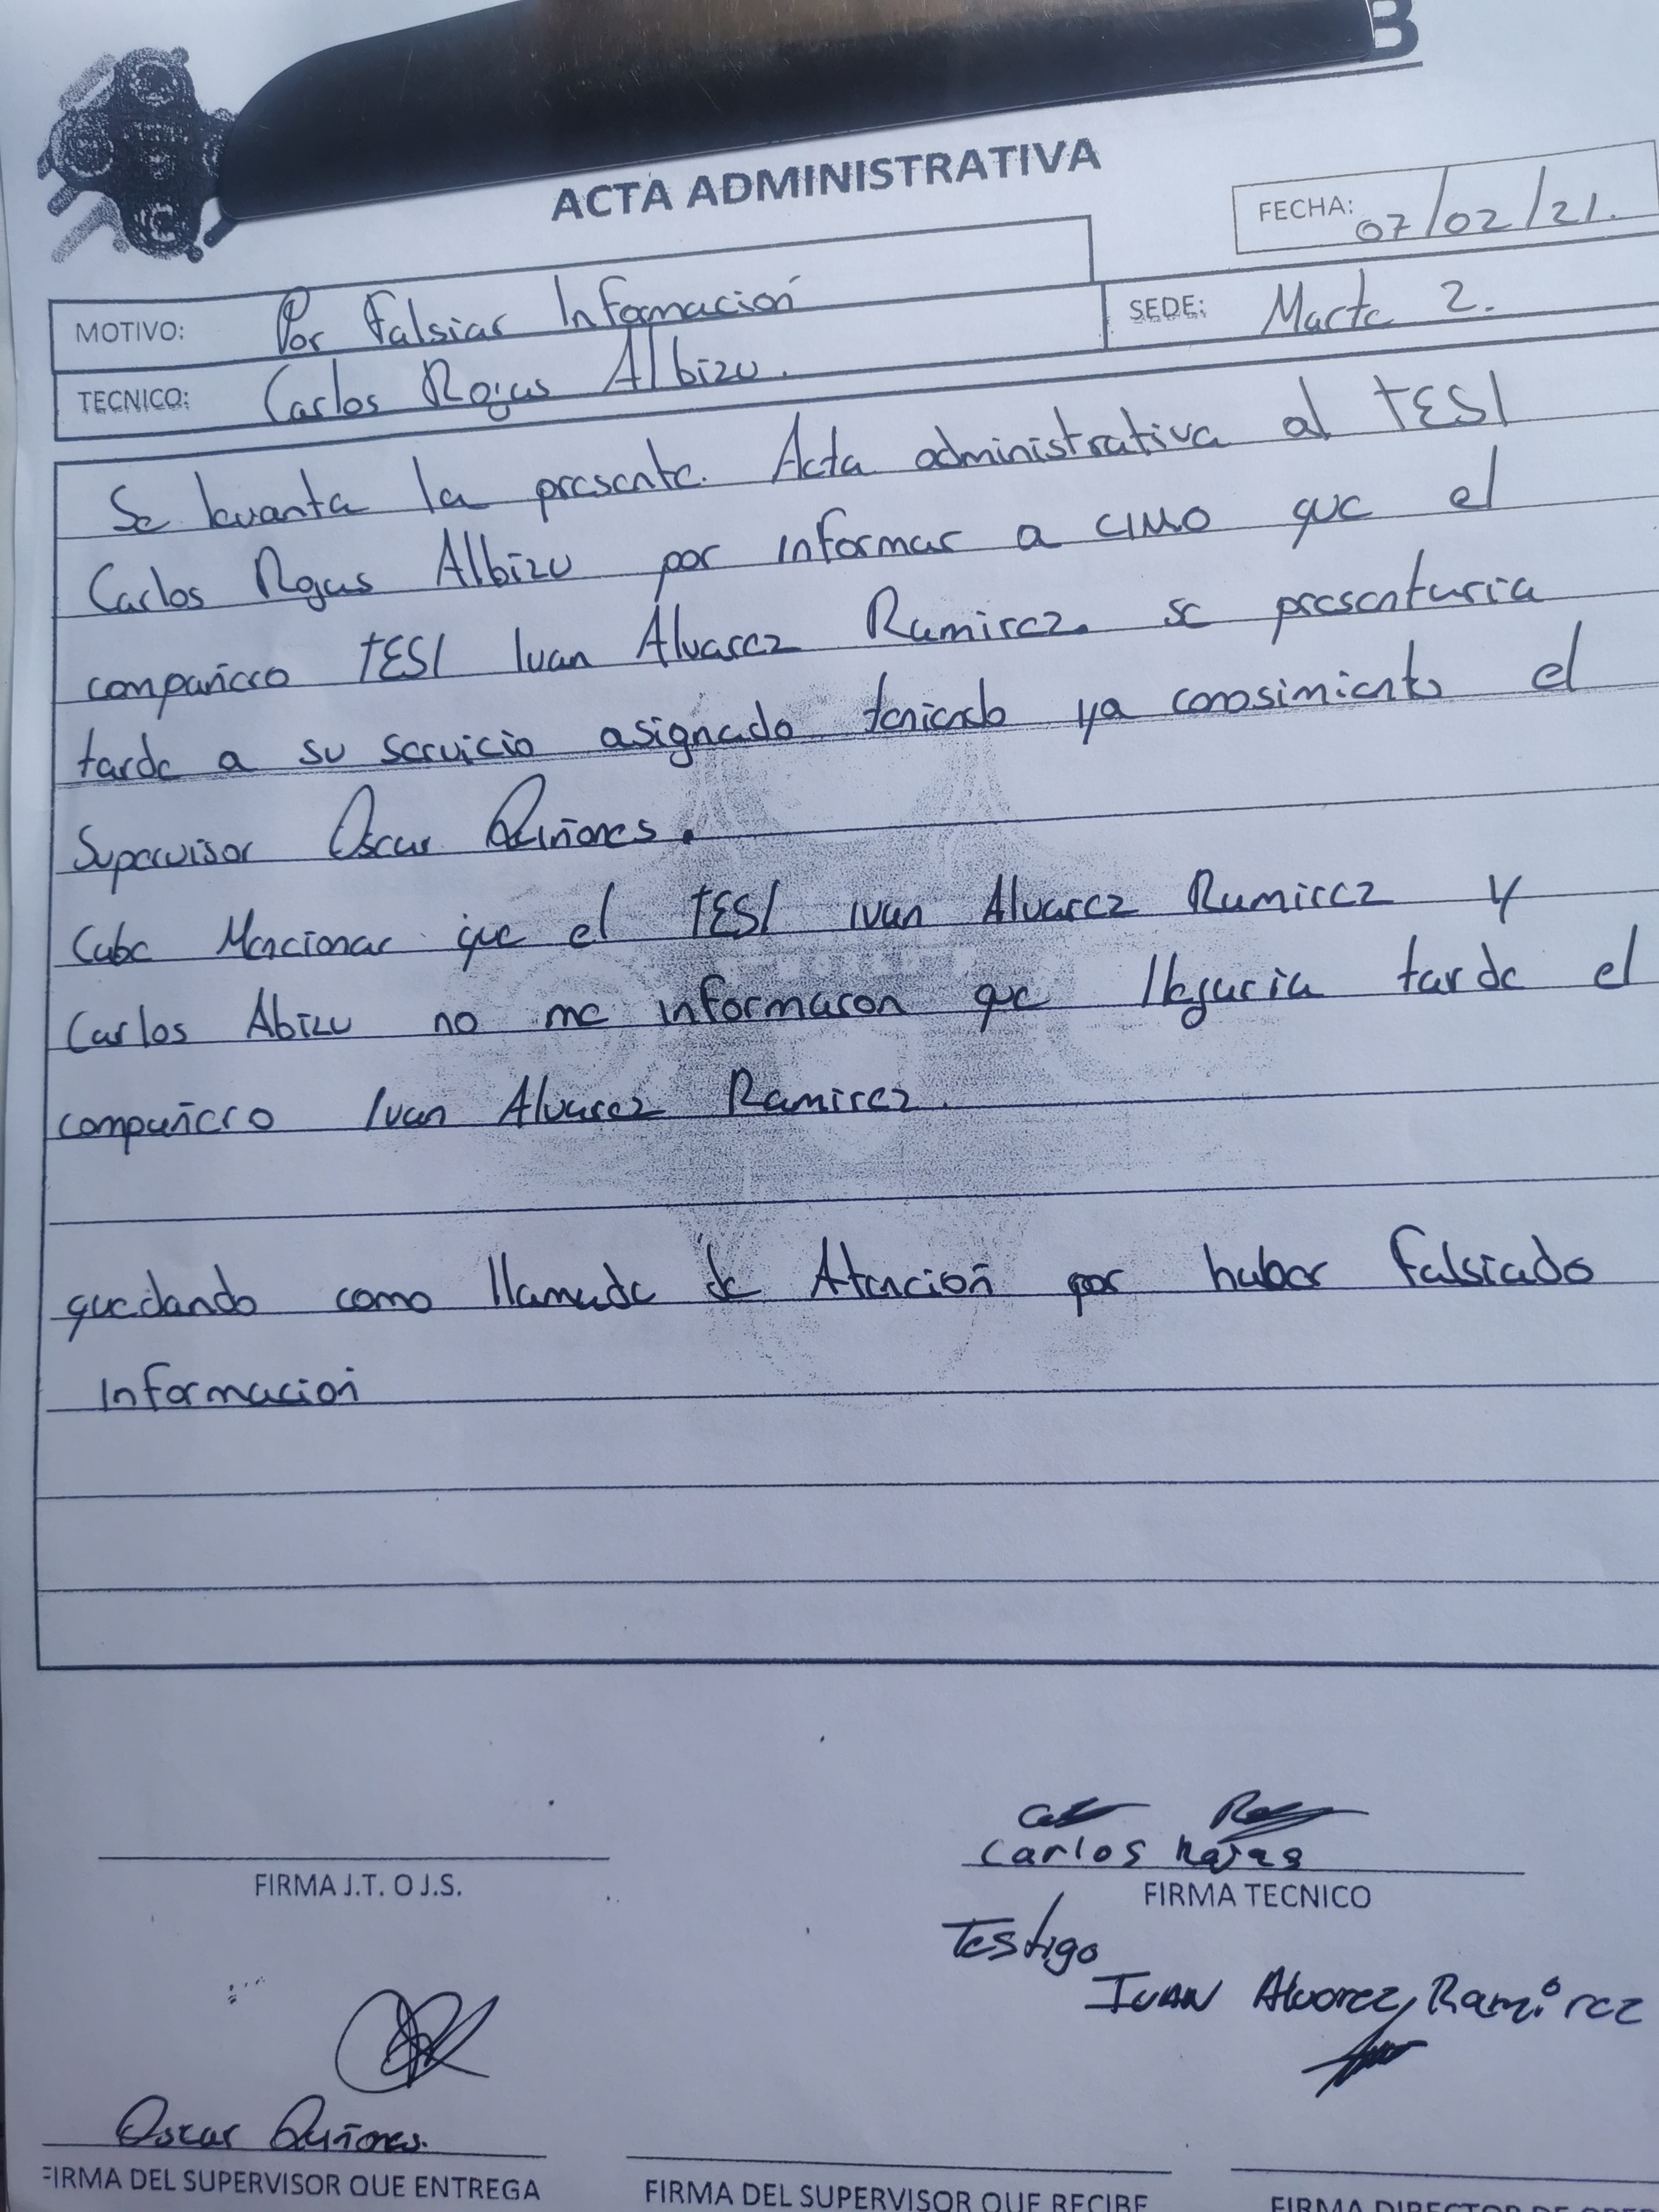 B
ACTA ADMINISTRATIVA
FECHA: 07/02/21.
MOTIVO: Por Falsiar Información
SEDE: Marte 2.
TECNICO: Carlos Rojas Albizu.
Se levanta la presente. Acta administrativa al TESI
Carlos Rojas Albizu por informar a CIMO que el
compañero TESI Ivan Alvarez Ramirez. se presentaria
tarde a su servicio asignado teniendo ya conosimiento el
Supervisor Oscar Quiñones.
Cabe Mencionar que el TESI Ivan Alvarez Ramirez y
Carlos Abizu no me informaron que llegaria tarde el
compañero Ivan Alvarez Ramirez.
quedando como llamada de Atención por haber Falsiado
Información
Carlos Rojas
FIRMA J.T. O J.S.
FIRMA TECNICO
Testigo
Ivan Alvarez Ramirez
Oscar Quiñones.
FIRMA DEL SUPERVISOR QUE ENTREGA
FIRMA DEL SUPERVISOR QUE RECIBE
FIRMA DIRECTOR DE OPER